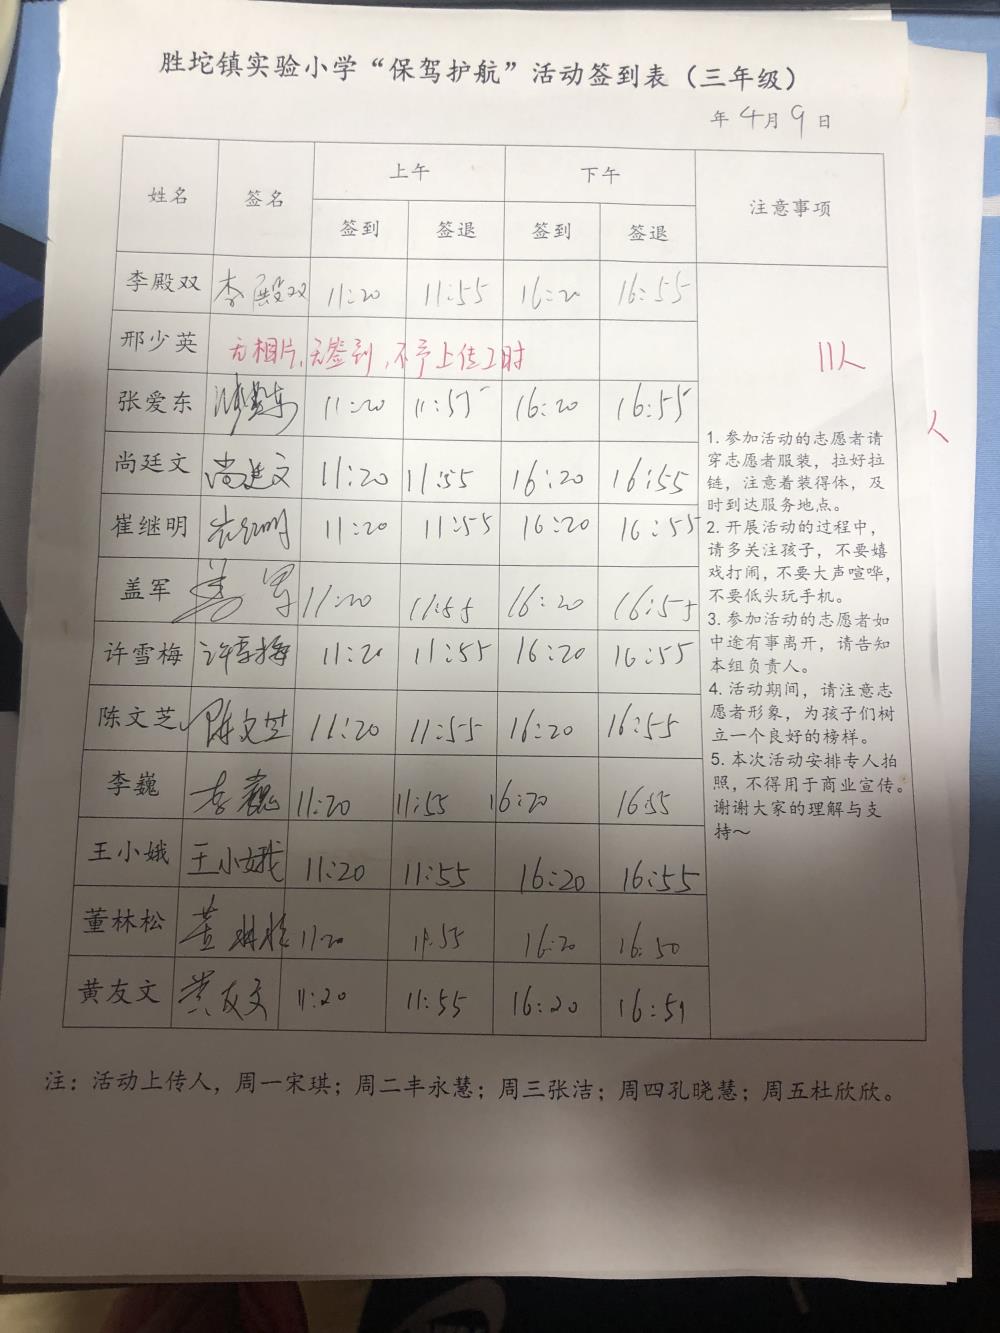 胜坨镇实验小学“保驾护航”活动签到表（三年级）
年 4月 9 日
姓名 签名 上午 下午 注意事项
签到 签退 签到 签退
李殿双 李殿双 11:20 11:55 16:20 16:55
邢少英 无相片、无签到,不予上传工时
11人
张爱东 11:20 11:55 16:20 16:55
人
尚廷文 尚廷文 11:20 11:55 16:20 16:55
崔继明 崔继明 11:20 11:55 16:20 16:55
盖军 盖军 11:20 11:55 16:20 16:55
许雪梅 许雪梅 11:20 11:55 16:20 16:55
陈文芝 陈文芝 11:20 11:55 16:20 16:55
李巍 李巍 11:20 11:55 16:20 16:55
王小娥 王小娥 11:20 11:55 16:20 16:55
董林松 董林松 11:20 11:55 16:20 16:50
黄友文 黄友文 11:20 11:55 16:20 16:51
1. 参加活动的志愿者请
穿志愿者服装，拉好拉
链，注意着装得体，及
时到达服务地点。
2. 开展活动的过程中，
请多关注孩子，不要嬉
戏打闹，不要大声喧哗，
不要低头玩手机。
3. 参加活动的志愿者如
中途有事离开，请告知
本组负责人。
4. 活动期间，请注意志
愿者形象，为孩子们树
立一个良好的榜样。
5. 本次活动安排专人拍
照，不得用于商业宣传。
谢谢大家的理解与支
持～
注：活动上传人，周一宋琪；周二丰永慧；周三张洁；周四孔晓慧；周五杜欣欣。